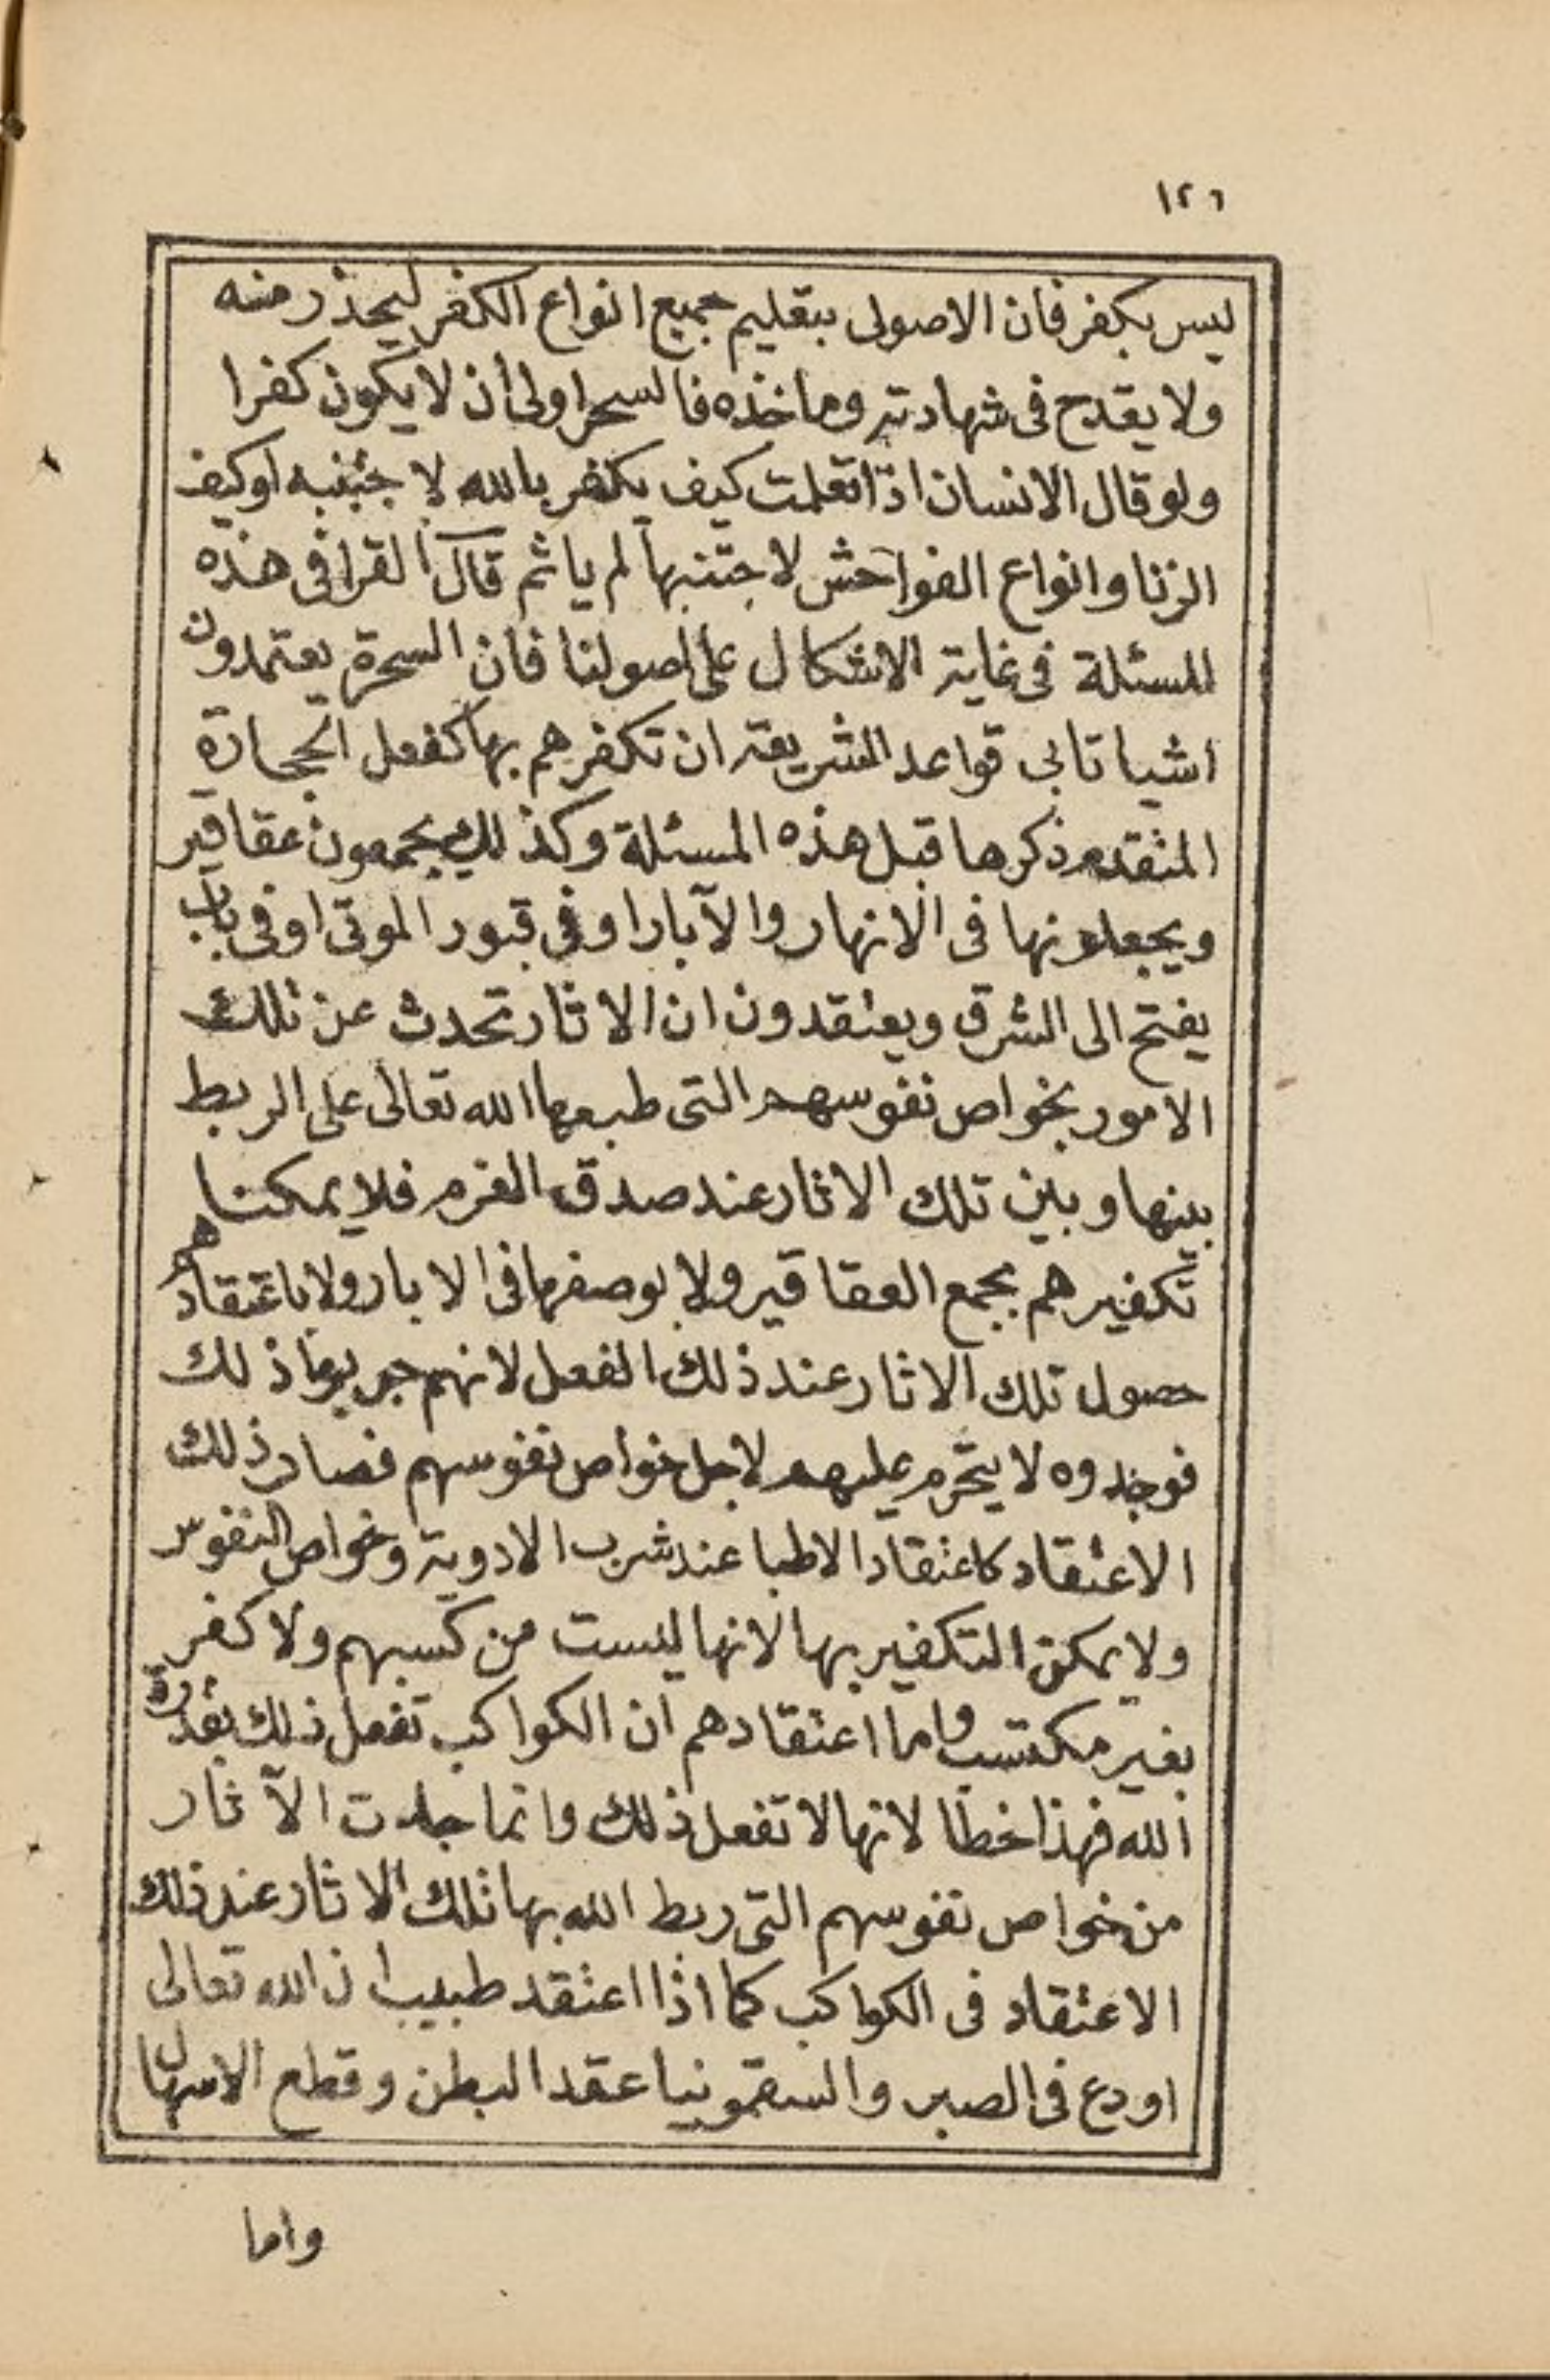 ١٢٦
ليس بكفر فان الاصولى بتعليم جميع انواع الكفر ليحذر منه
ولا يقدح فى شهادته وماخذه فالسحر اولى أن لا يكون كفرا
ولو قال الانسان اذا تعلمت كيف يكفر بالله لاجتنبه او كيف
الزنا وانواع الفواحش لاجتنبها لم ياثم قال القرافى هذه
المسئلة فى غاية الاشكال على اصولنا فان السحرة يعتمدون
اشيا تابى قواعد الشريعة ان تكفرهم بها كفعل الحجارة
المتقدم ذكرها قبل هذه المسئلة وكذلك يجمعون عقاقير
ويجعلونها فى الانهار والآبار او فى قبور الموتى او فى باب
يفتح الى الشرق ويعتقدون ان الاثار تحدث عن تلك
الامور بخواص نفوسهم التى طبعها الله تعالى على الربط
بينها وبين تلك الاثار عند صدق العزم فلا يمكننا
تكفيرهم بجمع العقاقير ولا بوضعها فى الابار ولا باعتقادهم
حصول تلك الاثار عند ذلك الفعل لانهم جربوا ذلك
فوجدوه لا يتخرم عليهم لاجل خواص نفوسهم فصار ذلك
الاعتقاد كاعتقاد الاطبا عند شرب الادوية وخواص النفوس
ولا يمكن التكفير بها لانها ليست من كسبهم ولا كفر
بغير مكتسب واما اعتقادهم ان الكواكب تفعل ذلك بقدرة
الله فهذا خطا لانها لا تفعل ذلك وانما جات الآثار
من خواص نفوسهم التى ربط الله بها تلك الاثار عند ذلك
الاعتقاد فى الكواكب كما اذا اعتقد طبيب ان الله تعالى
اودع فى الصبر والسقمونيا عقد البطن وقطع الاسهال
واما